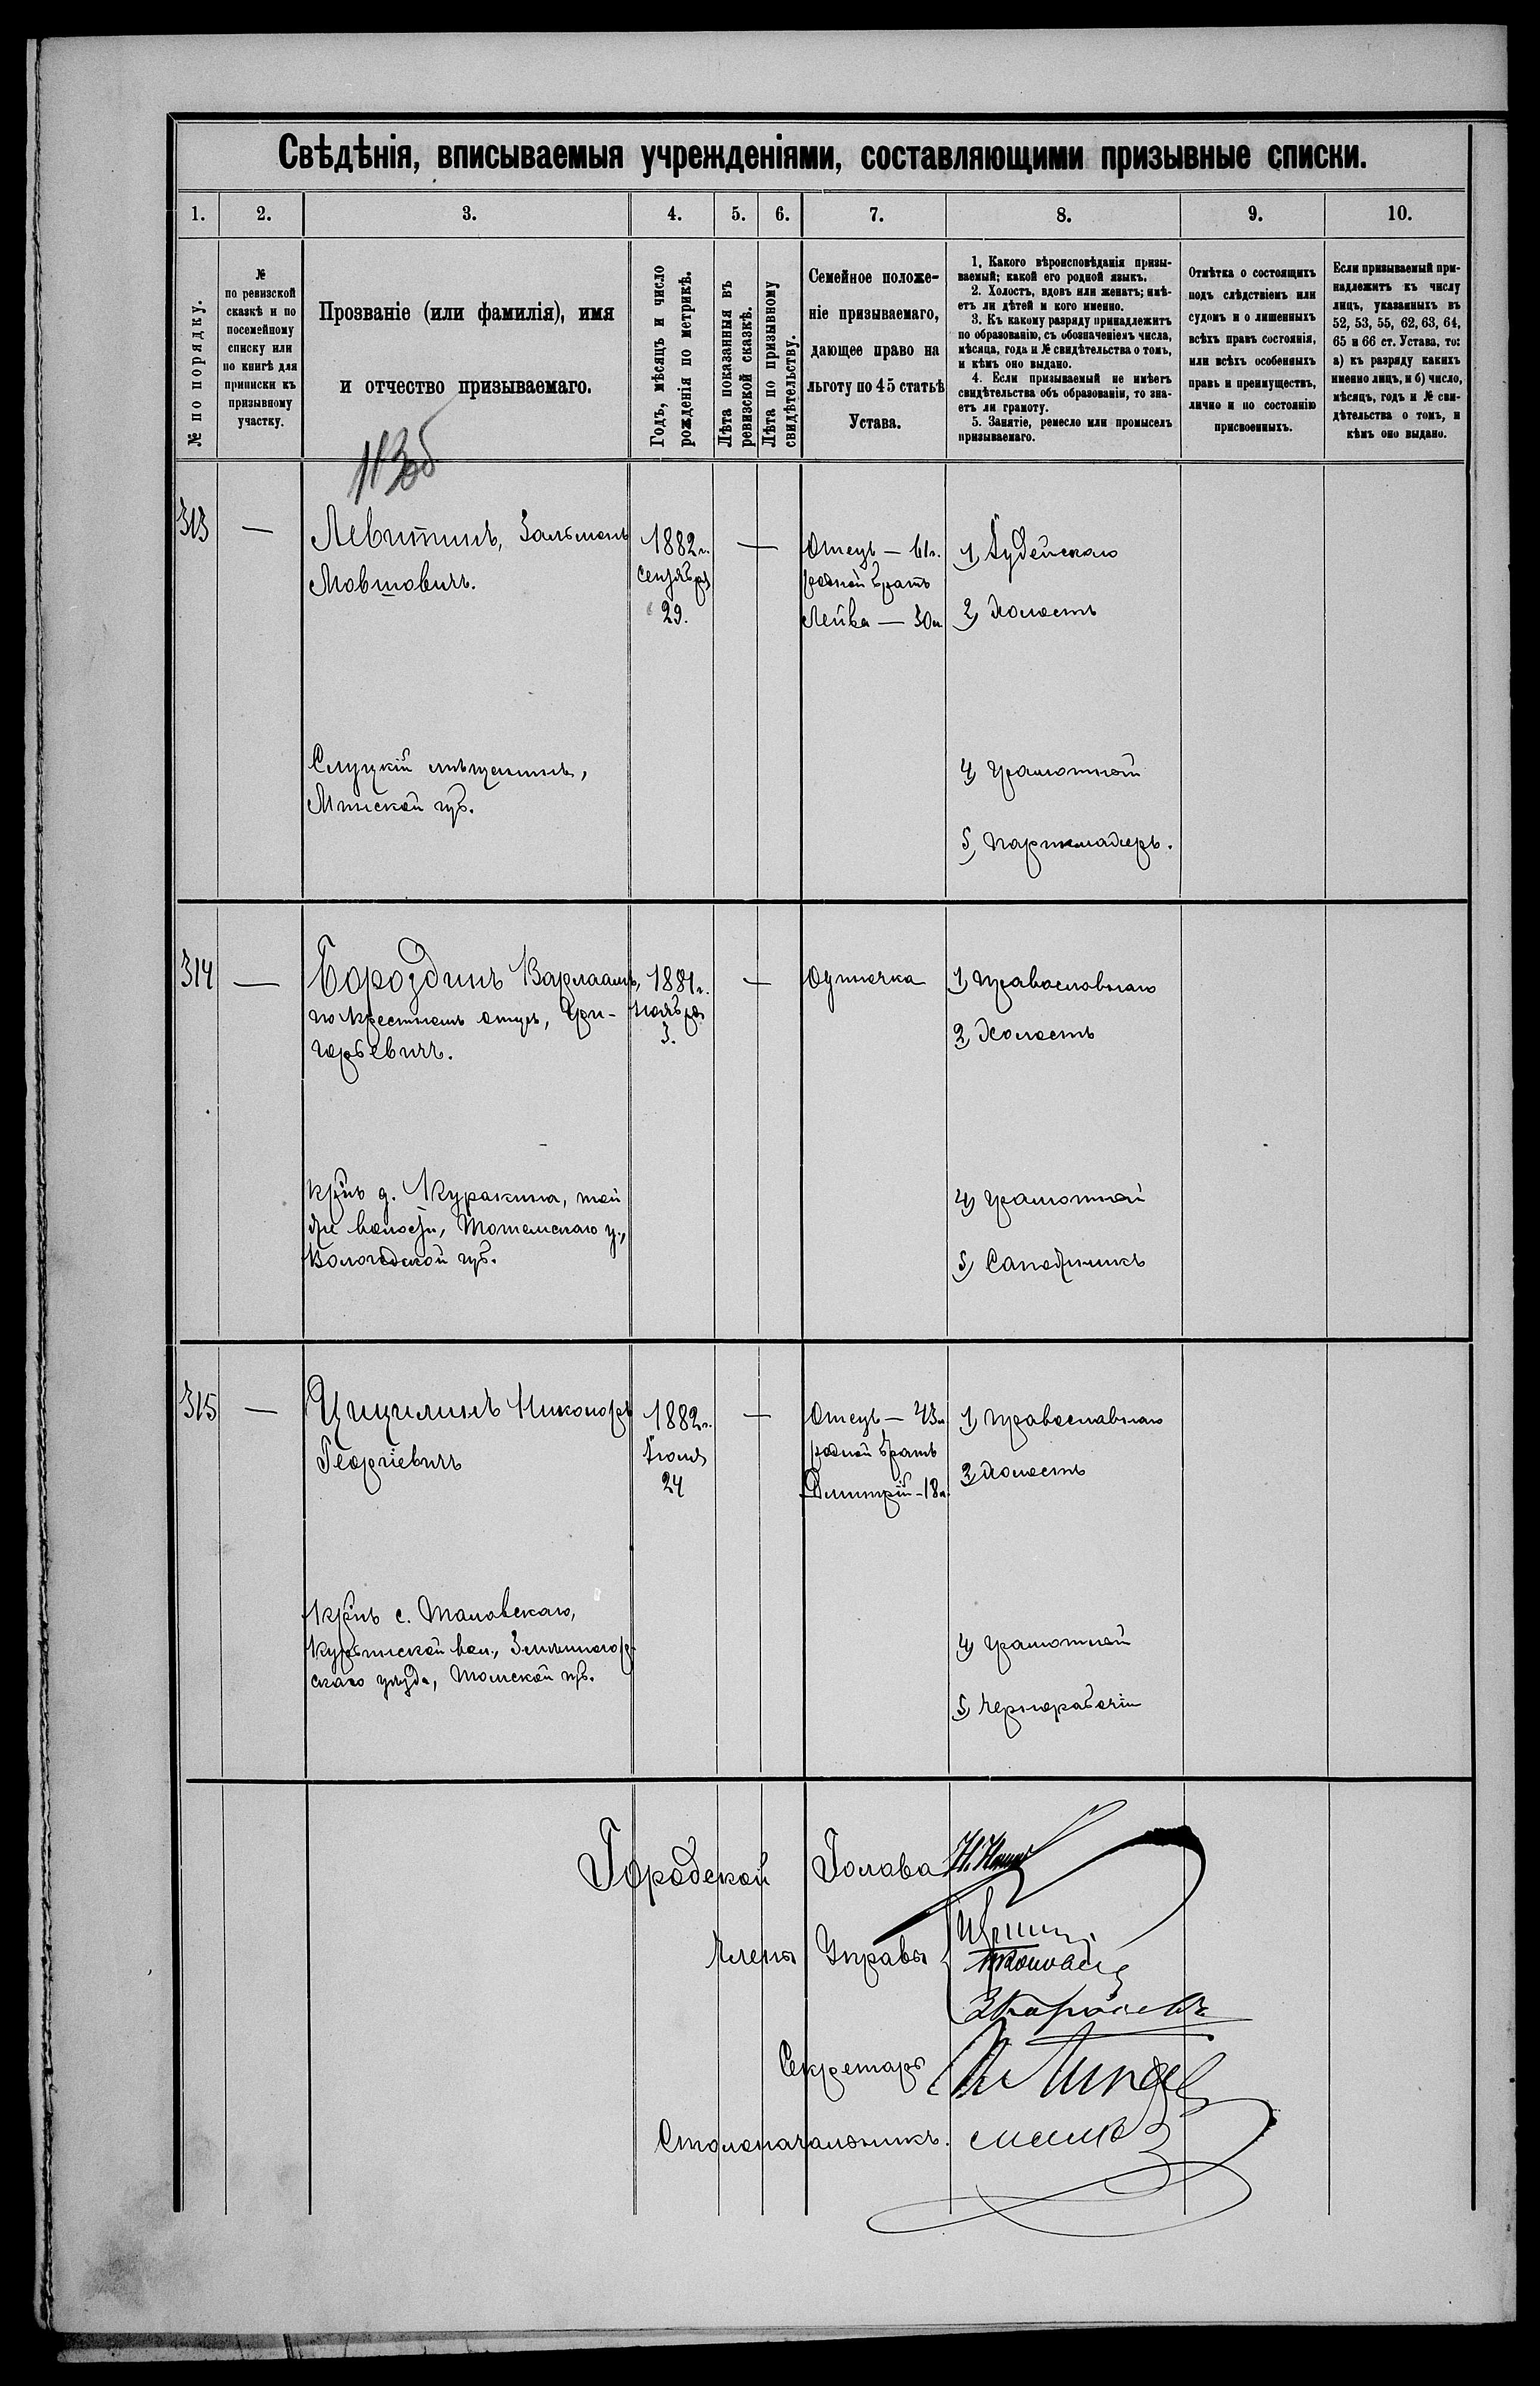 Свѣдѣнія, вписываемыя учрежденіями, составляющими призывные списки.
1. 2. 3. 4. 5. 6. 7. 8. 9. 10.
№ по порядку.
№
по ревизской
сказкѣ и по
посемейному
списку или
по книгѣ для
приписки къ
призывному
участку.
Прозваніе (или фамилія), имя
и отчество призываемаго.
Годъ, мѣсяцъ и число
рожденія по метрикѣ.
Лѣта показанныя въ
ревизской сказкѣ.
Лѣта по призывному
свидѣтельству.
Семейное положе-
ніе призываемаго,
дающее право на
льготу по 45 статьѣ
Устава.
1. Какого вѣроисповѣданія призы-
ваемый; какой его родной языкъ.
2. Холостъ, вдовъ или женатъ; имѣ-
етъ ли дѣтей и кого именно.
3. Къ какому разряду принадлежитъ
по образованію, съ обозначеніемъ числа,
мѣсяца, года и № свидѣтельства о томъ,
и кѣмъ оно выдано.
4. Если призываемый не имѣетъ
свидѣтельства объ образованіи, то зна-
етъ ли грамоту.
5. Занятіе, ремесло или промыселъ
призываемаго.
Отмѣтка о состоящихъ
подъ слѣдствіемъ или
судомъ и о лишенныхъ
всѣхъ правъ состоянія,
или всѣхъ особенныхъ
правъ и преимуществъ,
лично и по состоянію
присвоенныхъ.
Если призываемый при-
надлежитъ къ числу
лицъ, указанныхъ въ
52, 53, 55, 62, 63, 64,
65 и 66 ст. Устава, то:
а) къ разряду какихъ
именно лицъ, и б) число,
мѣсяцъ, годъ и № сви-
дѣтельства о томъ, и
кѣмъ оно выдано.
313 —
Левитинъ, Зальманъ
Мовшовичъ.
Слуцкій мѣщанинъ,
Минской губ.
1882 г.
Сентября
29.
—
Отецъ — 61 г.
родной братъ
Лейба — 30 л.
1, Іудейскаго
2, Холостъ
4, грамотный
5, Парикмахеръ.
314 —
Бороздинъ Варлаамъ,
по крестномъ отцѣ, Гри-
горьевичъ.
Кр-нъ д. Куракина, той
же волости, Тотемскаго у.,
Вологодской губ.
1881 г.
Ноября
3.
—
Одиночка
1, Православнаго
2, Холостъ
4, грамотный
5, Сапожникъ
315 —
Цицилинъ Никаноръ
Георгіевичъ
Кр-нъ с. Таловскаго,
Курьинской вол., Змѣиногор-
скаго уѣзда, Томской губ.
1882 г.
Іюля
24
—
Отецъ — 43 л.
родной братъ
Димитрій - 18 л.
1, Православнаго
2, Холостъ
4, грамотный
5, Чернорабочій
Городской Голова
Члены Управы
Секретарь
Столоначальникъ.